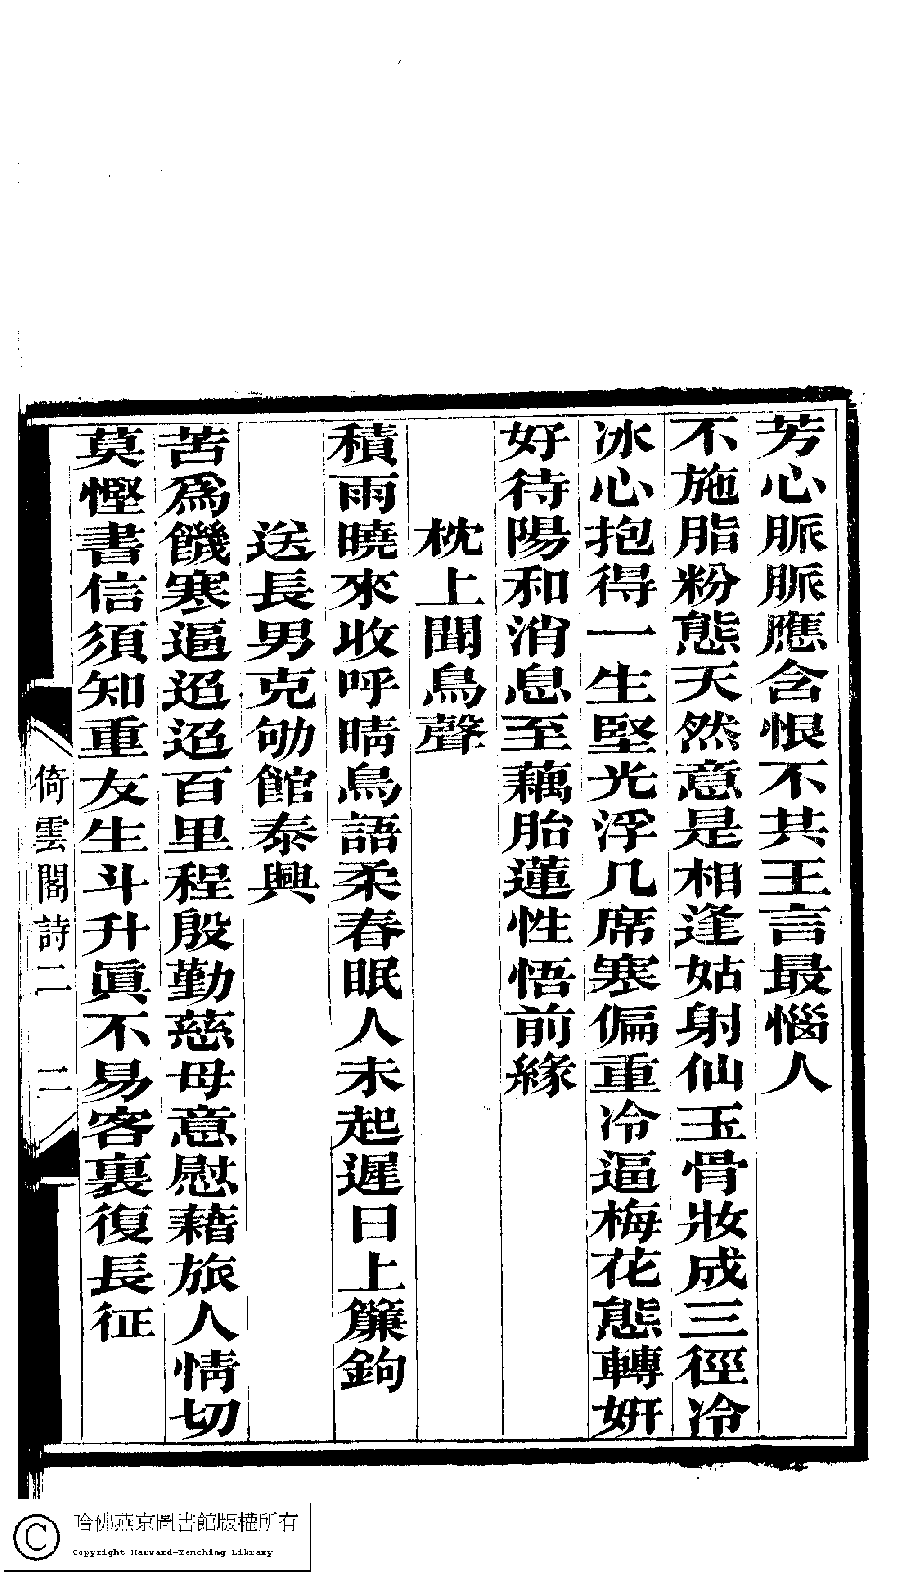 芳心脈脈應含恨不共王言最惱人
不施脂粉態天然意是相逢姑射仙玉骨妝成三徑冷
冰心抱得一生堅光浮几席寒偏重冷逼梅花態轉妍
好待陽和消息至藕胎蓮性悟前緣
枕上聞鳥聲
積雨曉來收呼晴鳥語柔春眠人未起遲日上簾鉤
送長男克劬館泰興
苦爲饑寒逼迢迢百里程殷勤慈母意慰藉旅人情切
莫慳書信須知重友生斗升眞不易客裏復長征
倚雲閣詩二 二
哈佛燕京圖書館版權所有
Copyright Harvard-Yenching Library